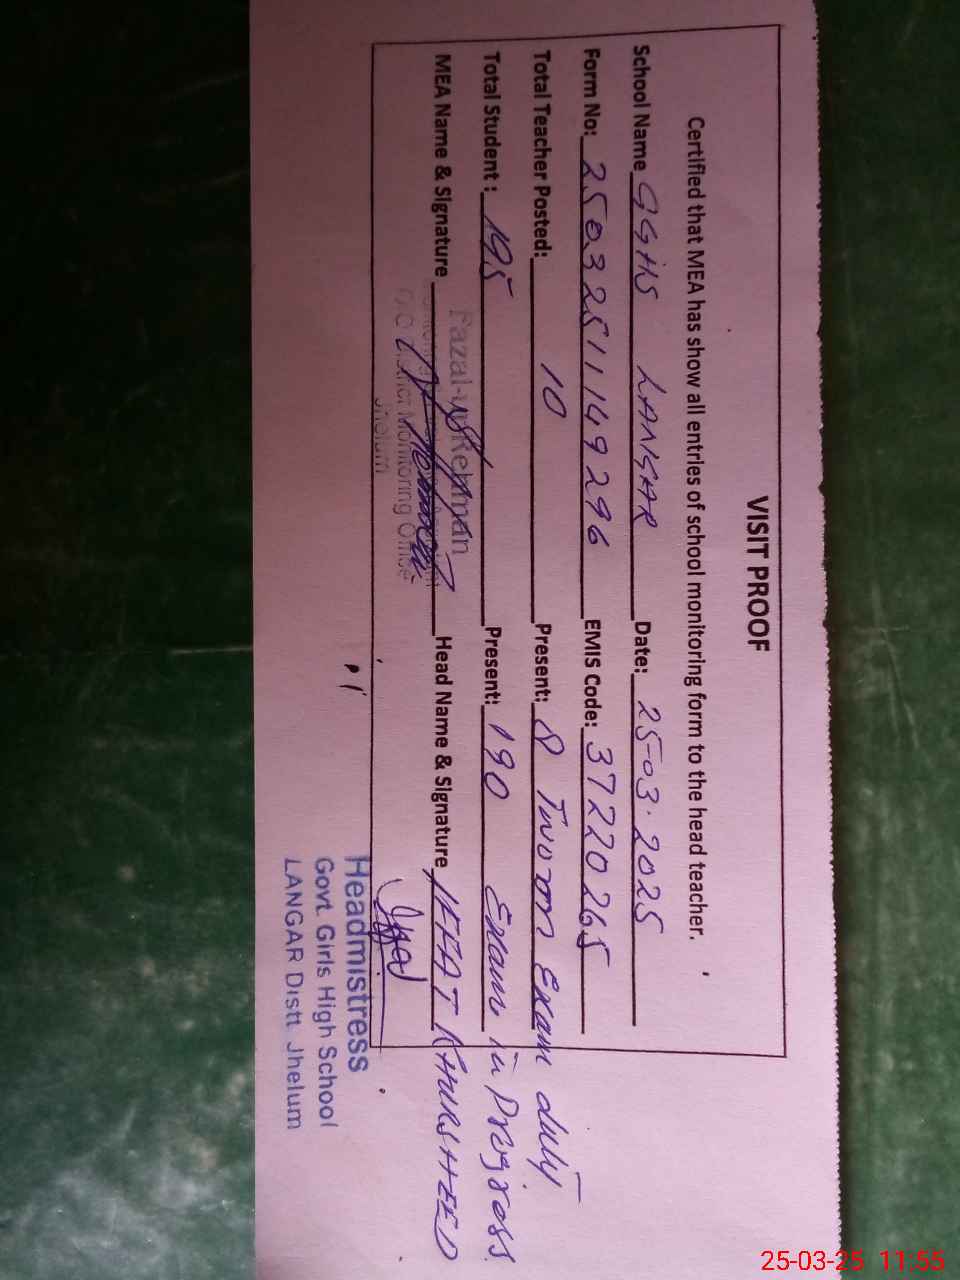 VISIT PROOF
Certified that MEA has show all entries of school monitoring form to the head teacher.
School Name GGHS LANGAR Date: 25-03-2025
Form No: 25032511149296 EMIS Code: 37220265
Total Teacher Posted: 10 Present: 8 Two on Exam duty
Total Student: 195 Present: 190 Exam in Progress
MEA Name & Signature Fazal-ur-Rehman Head Name & Signature IFFAT KHURSHEED
District Monitoring Office
Jhelum
Headmistress
Govt. Girls High School
LANGAR Distt. Jhelum
25-03-25 11:55